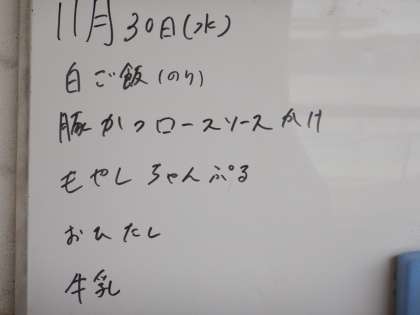 11月30日(水)
白ご飯(のり)
豚かつロースソースかけ
もやしちゃんぷる
おひたし
牛乳